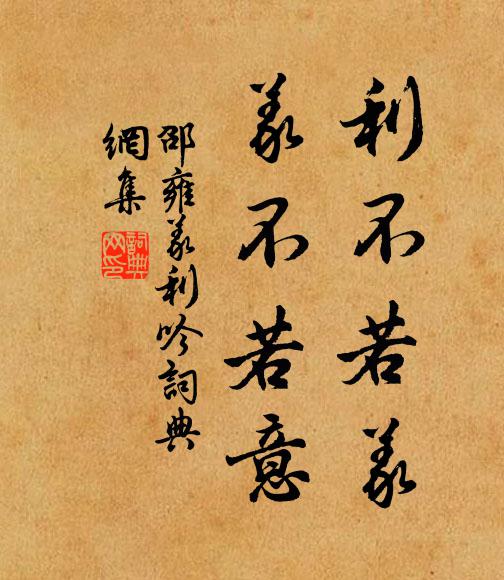 利不若義
義不若意
邵雍義利吟詞典
網集
詞典
网印